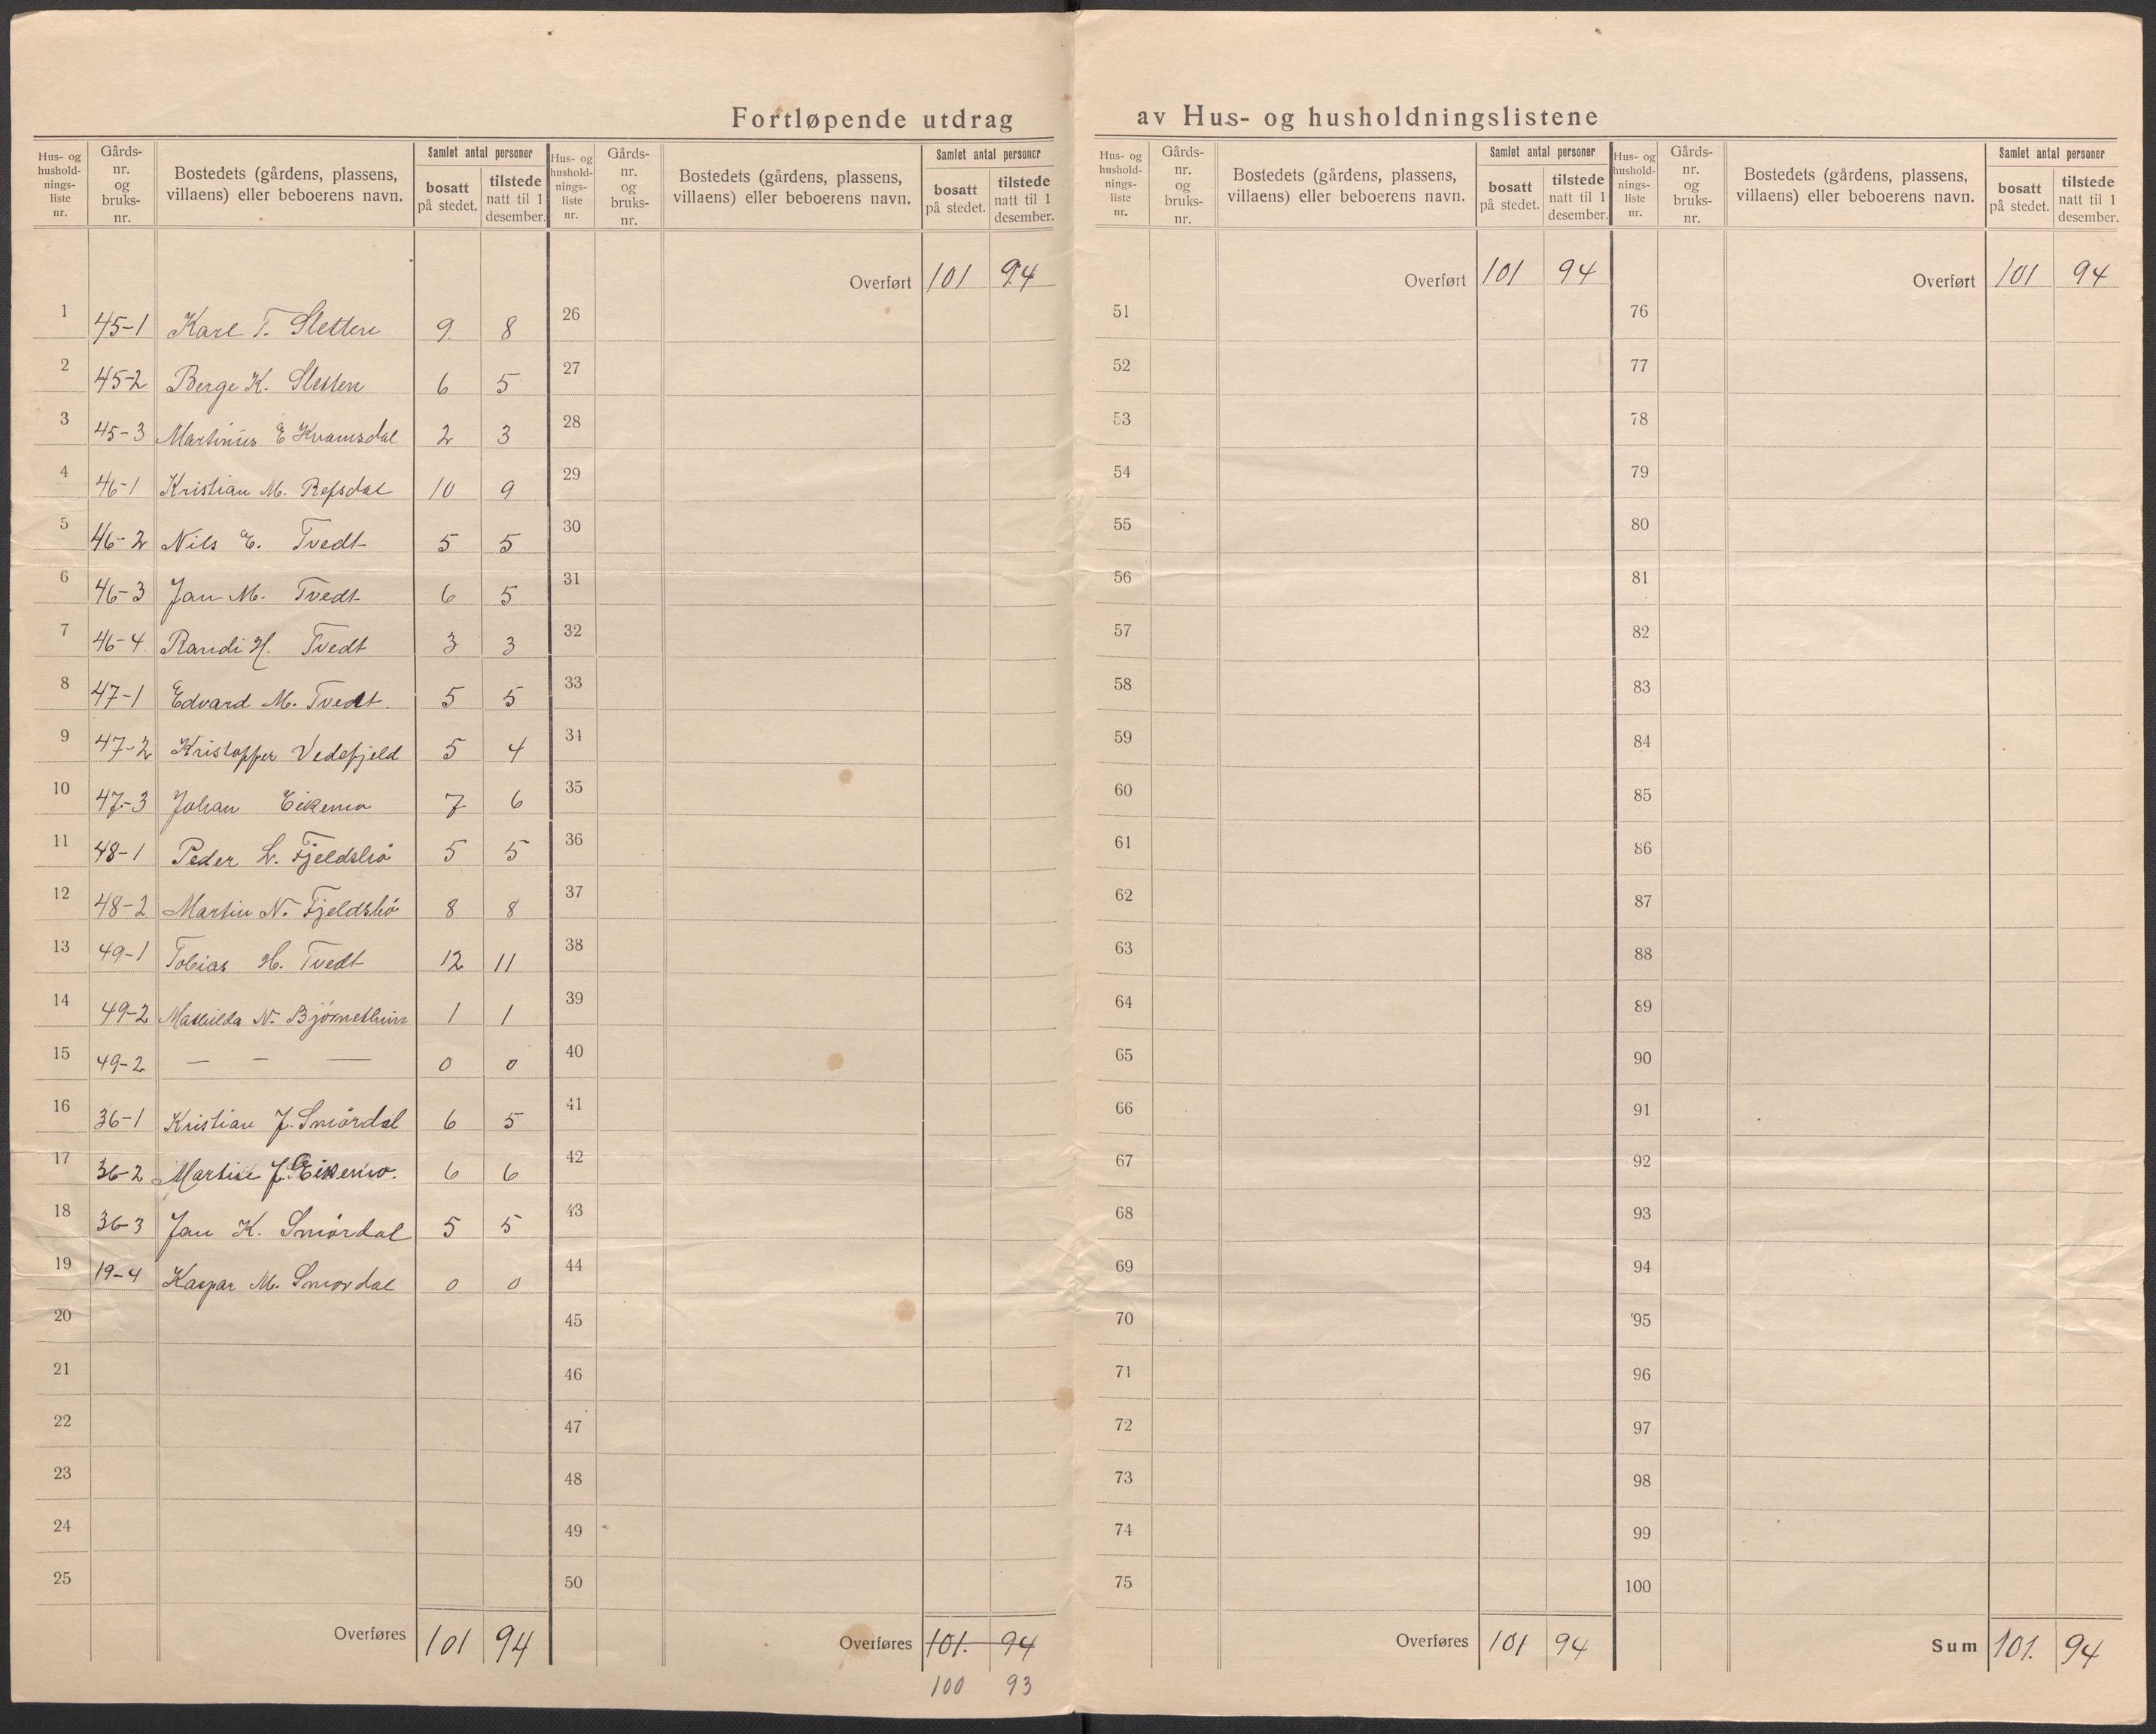 Fortløpende utdrag av Hus- og husholdningslistene
Hus- og husholdnings-liste nr. Gårds-nr. og bruks-nr. Bostedets (gårdens, plassens, villaens) eller beboerens navn. Samlet antal personer bosatt på stedet. tilstede natt til 1 desember.
1 45-1 Karl T. Sletten 9. 8
2 45-2 Berge K. Sletten 6 5
3 45-3 Martinus E Kvamsdal 2 3
4 46-1 Kristian M. Refsdal 10 9
5 46-2 Nils E. Tvedt 5 5
6 46-3 Jan M. Tvedt 6 5
7 46-4 Randi H. Tvedt 3 3
8 47-1 Edvard M. Tvedt. 5 5
9 47-2 Kristoffer Vedefjeld 5 4
10 47-3 Johan Eikemo 7 6
11 48-1 Peder L. Fjeldsbø 5 5
12 48-2 Martin N. Fjeldsbø 8 8
13 49-1 Tobias H. Tvedt 12 11
14 49-2 Mathilda N. 1 1
15 49-2 — – — 0 0
16 36-1 Kristian J. Smördal 6 5
17 36-2 J. Eikemo. 6 6
18 36-3 Jan K. Smördal 5 5
19 19-4 Kaspar M. Smördal 0 0
20
21
22
23
24
25
Overføres 101 94
Hus- og husholdnings-liste nr. Gårds-nr. og bruks-nr. Bostedets (gårdens, plassens, villaens) eller beboerens navn. Samlet antal personer bosatt på stedet. tilstede natt til 1 desember.
Overført 101 94
26
27
28
29
30
31
32
33
34
35
36
37
38
39
40
41
42
43
44
45
46
47
48
49
50
Overføres 101. 94
100 93
Hus- og husholdnings-liste nr. Gårds-nr. og bruks-nr. Bostedets (gårdens, plassens, villaens) eller beboerens navn. Samlet antal personer bosatt på stedet. tilstede natt til 1 desember.
Overført 101 94
51
52
53
54
55
56
57
58
59
60
61
62
63
64
65
66
67
68
69
70
71
72
73
74
75
Overføres 101 94
Hus- og husholdnings-liste nr. Gårds-nr. og bruks-nr. Bostedets (gårdens, plassens, villaens) eller beboerens navn. Samlet antal personer bosatt på stedet. tilstede natt til 1 desember.
Overført 101 94
76
77
78
79
80
81
82
83
84
85
86
87
88
89
90
91
92
93
94
95
96
97
98
99
100
Sum 101. 94